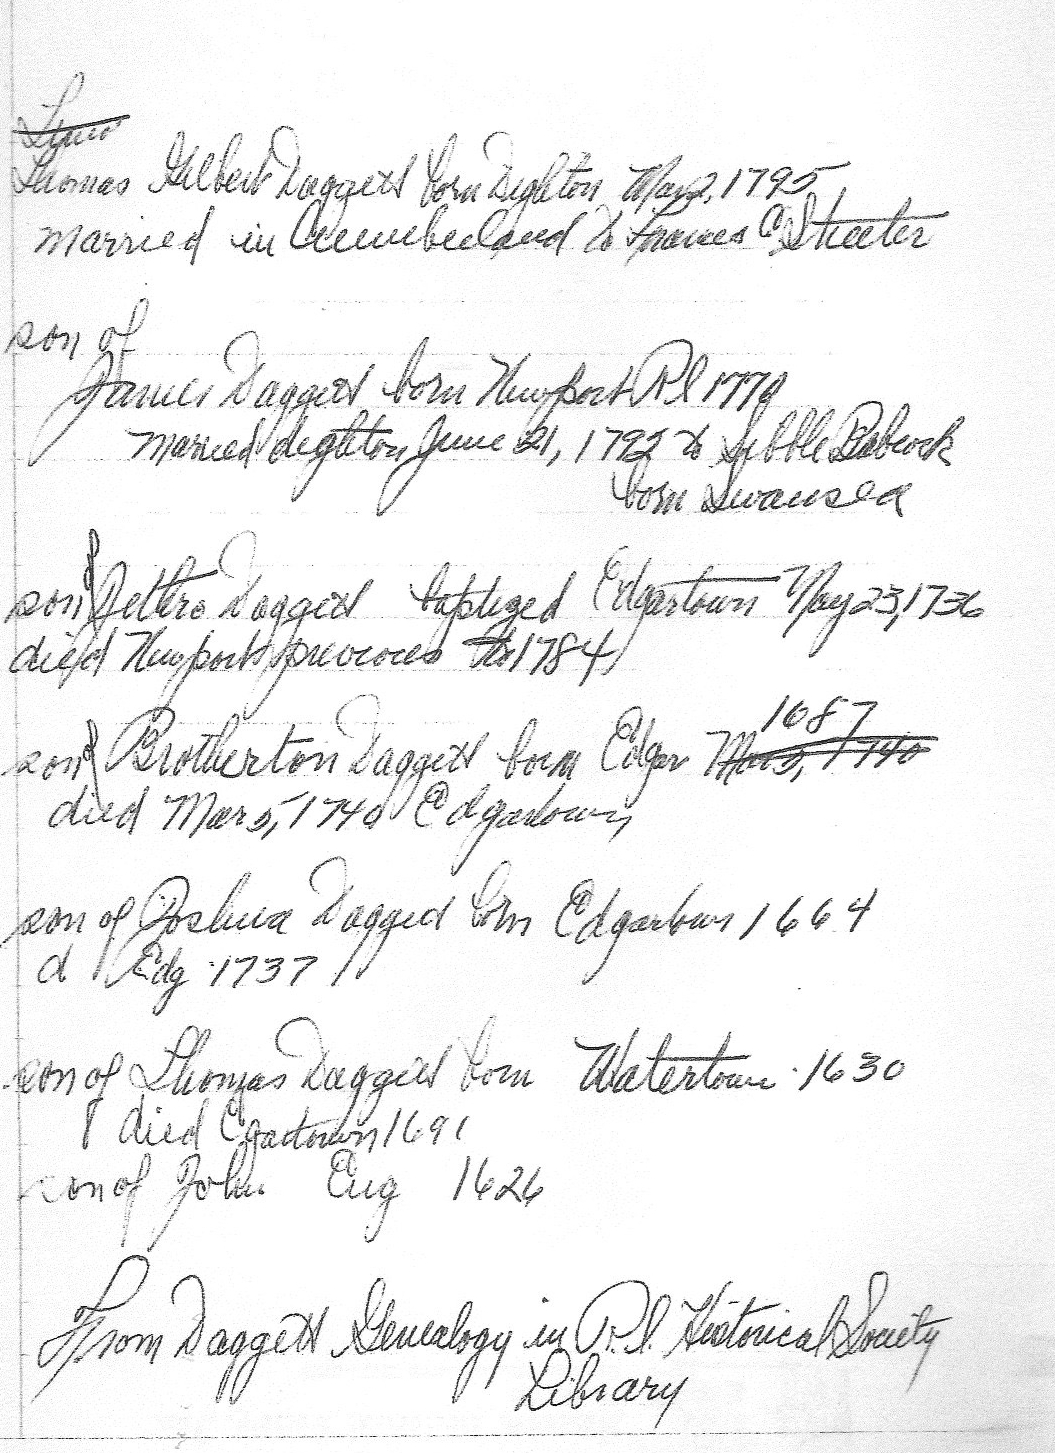 Thomas Gilbert Daggett born Dighton Mar 2, 1795
married in Cumberland to Frances C Streeter
son of
James Daggett born Newport R I 1770
married dighton June 21, 1792 to Sibble Babcock
born Swansea
son of Jethro Daggett baptized Edgartown May 23, 1736
died Newport previous to 1784
1687
son of Brotherton Daggett born Edgar Mar 5, 1740
died Mar 5, 1740 Edgartown
son of Joshua Daggett born Edgartown 1664
d Edg 1737
son of Thomas Daggett born Watertown 1630
died Egartown 1691
son of John Eng 1626
From Daggett Genealogy in R.I. Historical Society
Library